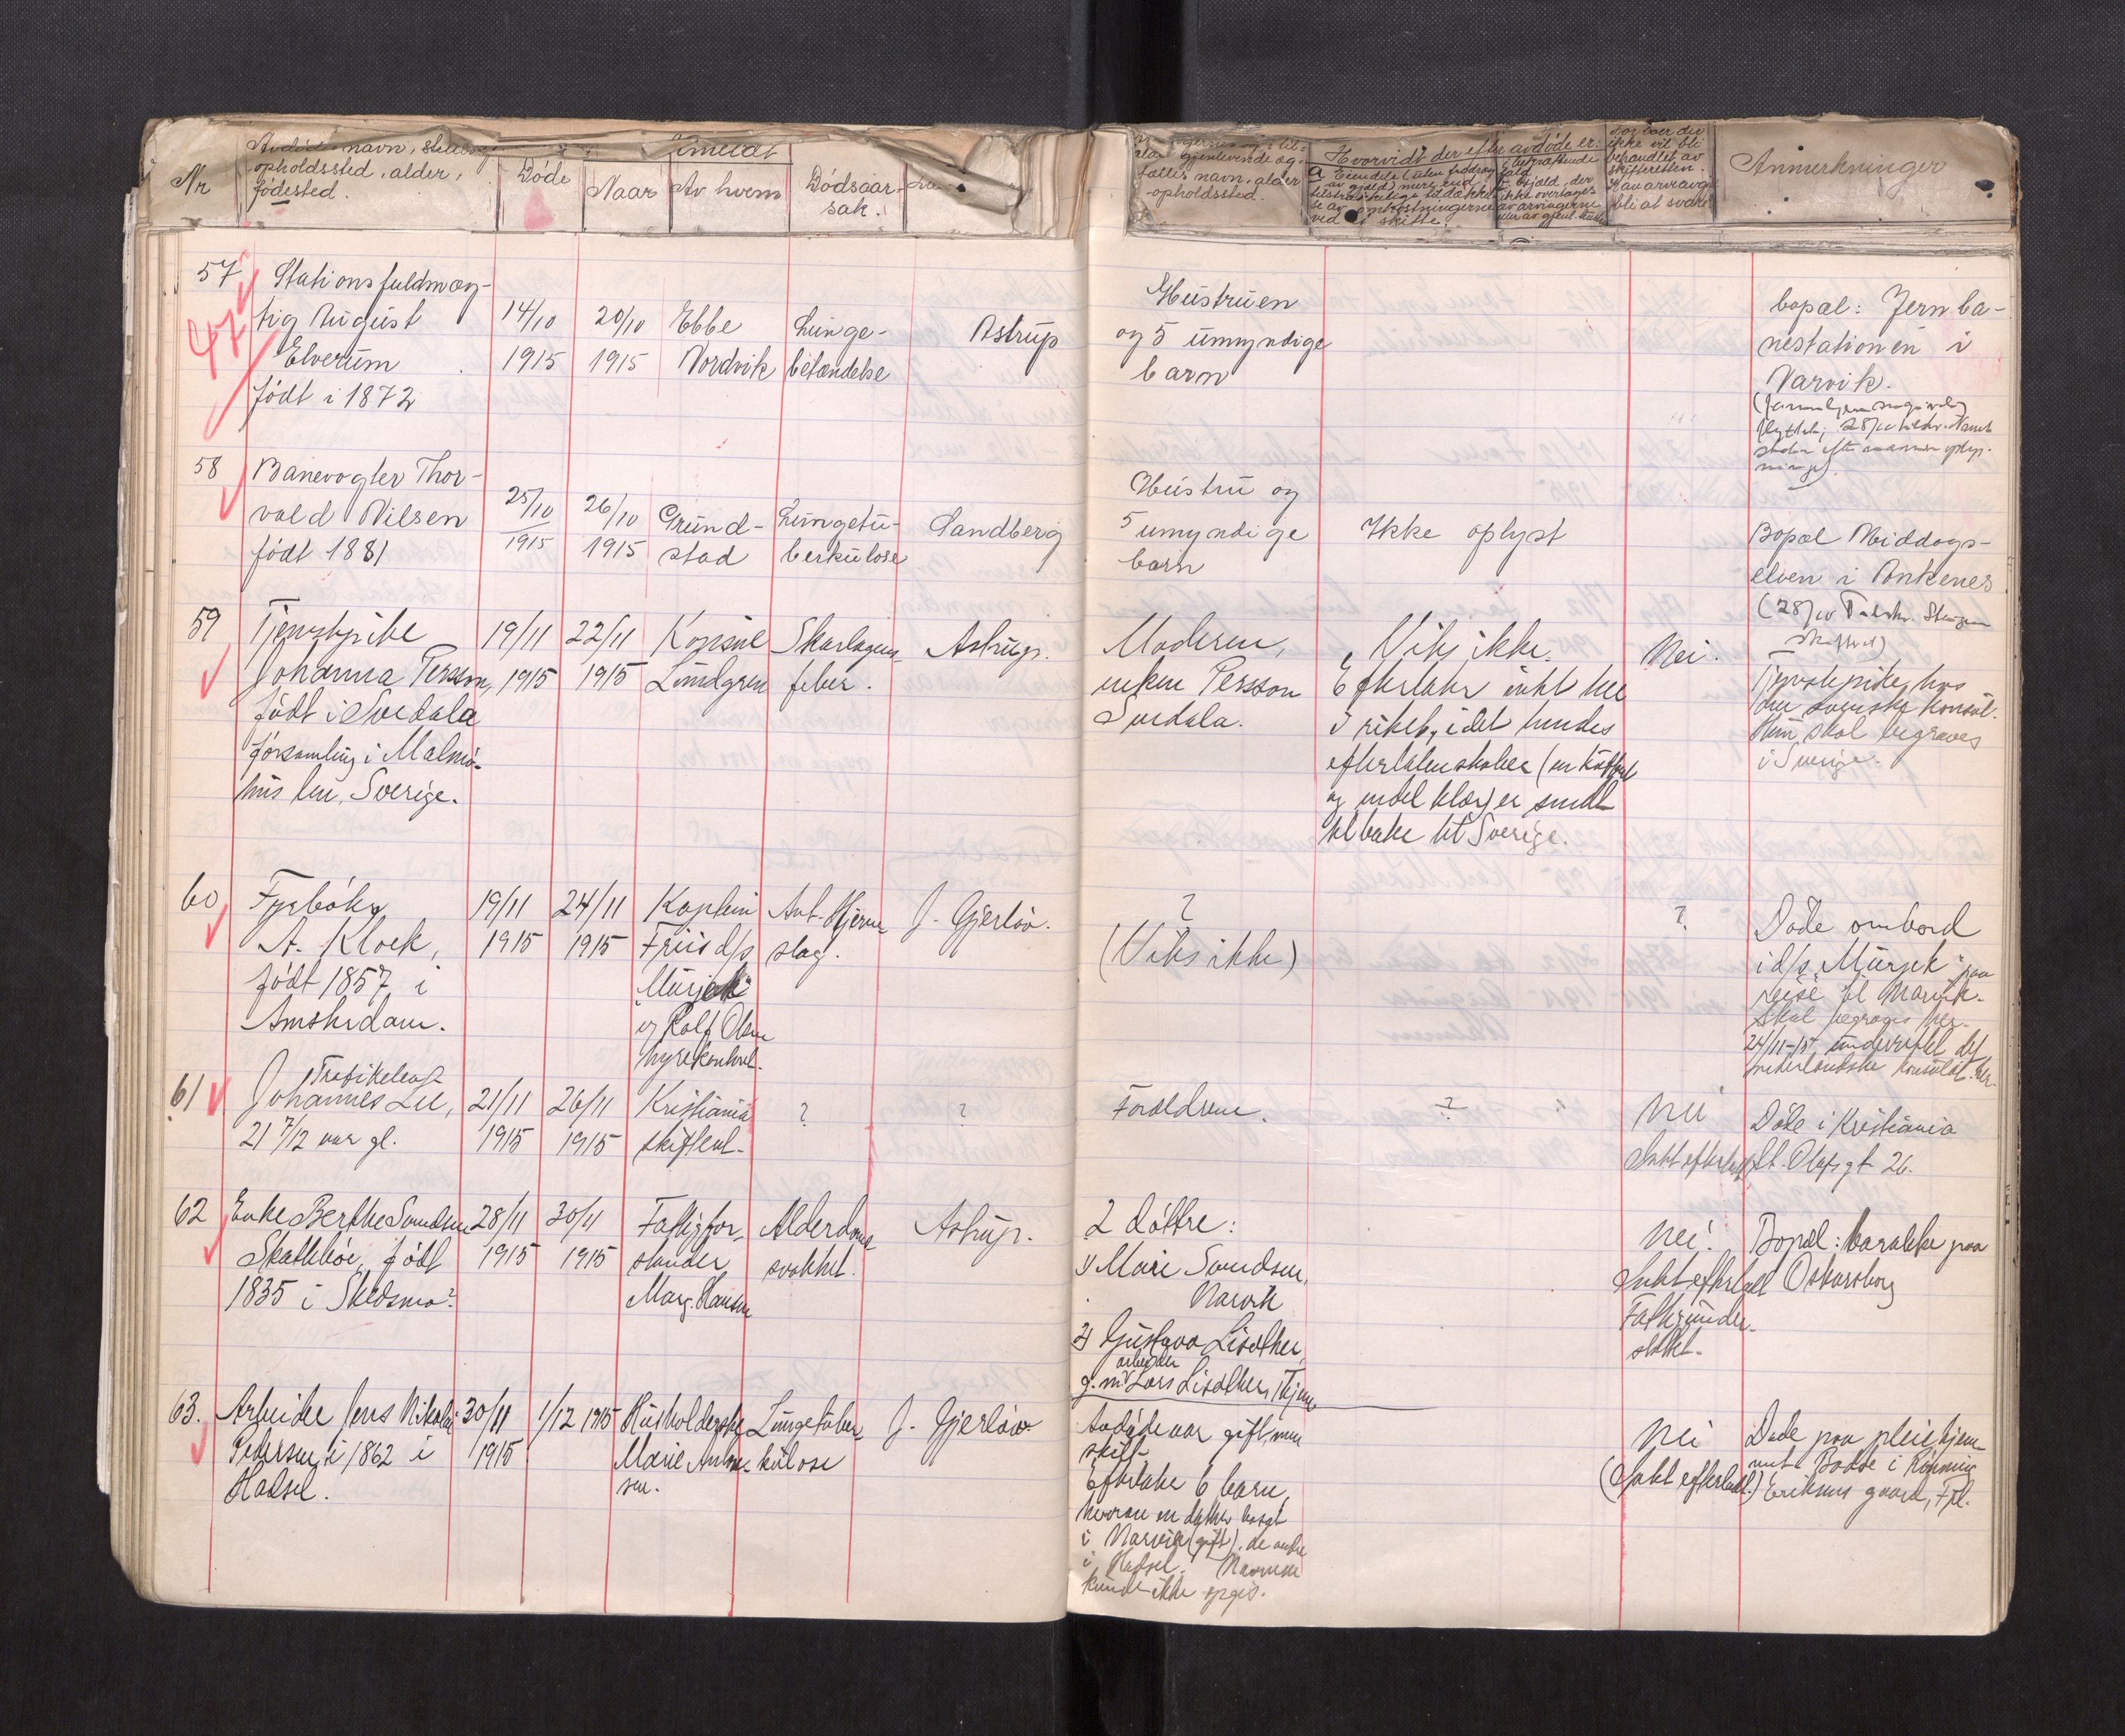 Nr
Avdødes navn, stilling
opholdssted, alder,
fødested.
Døde
Anmeldt
Naar
Av hvem
Dödsaar-
sak.
gjenlevende æg-
tefælles navn, alder
opholdssted.
Hvorvidt der efter avdöde er:
ved skifte.
ikke vil bli
behandlet av
skifteretten.
Anmerkninger
57
47
Stationsfuldmæg-
tig August
Elverum
født i 1872
14/10
1915
20/10
1915
Ebbe
Nordvik
Lunge-
betændelse
Astrup
Hustruen
og 5 umyndige
barn
bopæl: Jernba-
nestationen i
Narvik.
58
Banevogter Thor-
vald Nilsen
født 1881
25/10
1915
26/10
1915
Grund-
stad
Lungetu-
berkulose
Sandberg
Hustru og
5 umyndige
barn
Ikke oplyst
Bopæl Middags-
elven i Ankenes
59
Tjenestepike
Johanna Persson,
født i Svedala
forsamling i Malmö-
hus len, Sverige.
19/11
1915
22/11
1915
Konsul
Lundgren
Skarlagens-
feber.
Astrup.
Moderen,
enken Persson
Svedala.
Vites ikke.
Efterlater intet her
i riket, idet hendes
efterladenskaber (en koffert
og endel klær) er sendt
tilbake til Sverige.
Nei.
Tjenestepike hos
den svenske konsul.
Hun skal begraves
i Sverige.
60
Fyrböter
A. Kloek,
født 1857 i
Amsterdam.
19/11
1915
24/11
1915
Kaptein
Friis d/s
"Murjek"
og Rolf Olsen
hyrekontor.
Ant. Hjerne-
slag.
J. Gjerløv.
?
(Vites ikke)
?
Døde ombord
i d/s "Murjek" paa
reise til Narvik.
Skal begraves her.
24/11-15 underrettet det
nederlandske konsulat her.
61
Trafikelev
Johannes Lie,
21 7/12 aar gl.
21/11
1915
26/11
1915
Kristiania
skifteret-
?
?
Forældrene.
?
Nei
Intet efterladt
Døde i Kristiania
St. Olafsgt 26.
62
Enke Berthe Svendsen
Skattebøe, født
1835 i Skedsmo?
28/11
1915
30/11
1915
Fattigfor-
stander
Marg. Hansen
Alderdoms-
svakhet.
Astrup.
2 døttre:
1) Marie Svendsen,
Narvik
2) Gustava Lisether,
arbeider
g. m. Lars Lisether, Fjeme
Nei.
Intet efterladt
Fattigunder-
støttet.
Bopæl: barakke paa
Oskarsborg
63.
Arbeider Jens Nikolai
Pedersen, f. 1862 i
Hadsel.
30/11
1915
1/12 1915
Husholderske
Marie Anton-
sen.
Lungetuber-
kulose
J. Gjerløv
Avdøde var gift, men
skilt
Efterlater 6 barn,
hvorav en datter bosat
i Narvik (gift), de andre
i Hadsel. Navnene
kunde ikke opgis.
Nei
(Intet efterladt.)
Døde paa pleiehjem-
met. Bodde i Henning
Eriksens gaard, Fjl.